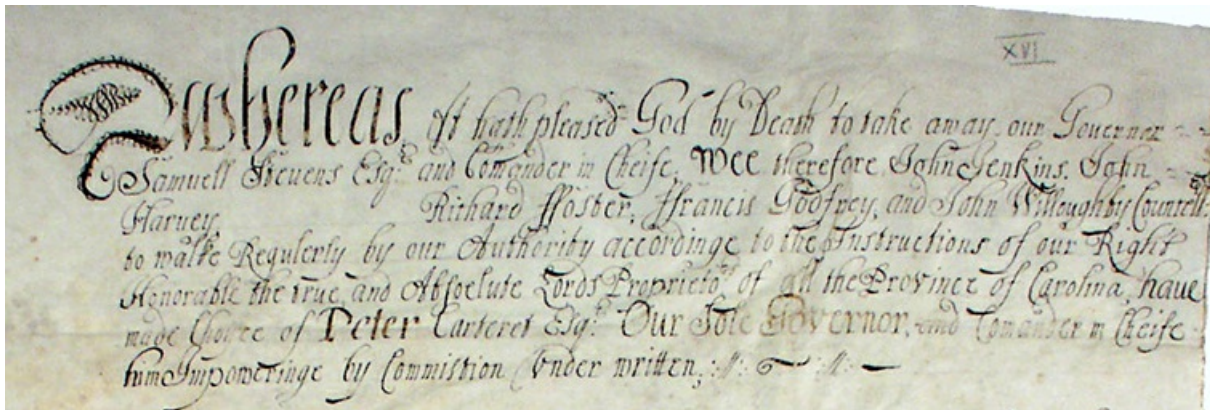 XVI
Whereas It hath pleased God by Death to take away our Governor
Samuell Stevens Esqr and Comander in Cheife, Wee therefore John Jenkins, John
Harvey, Richard Ffoster, Ffrancis Godfrey, and John Willoughby Councell:
to walke Regulerly by our Authority accordinge to the Instructions of our Right
Honorable the true and Absoelute Lords Proprietors of all the Province of Carolina, have
made Choice of Peter Carteret Esqr Our Sole Governor, and Comander in Cheife
him Impoweringe by Commistion Under written,